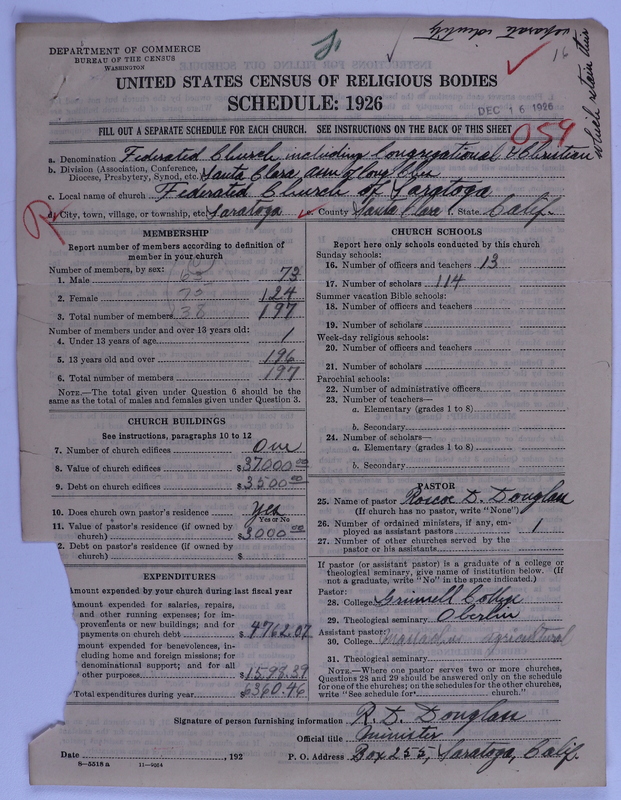 DEPARTMENT OF COMMERCE
BUREAU OF THE CENSUS
WASHINGTON
which retain their
separate identity
16
UNITED STATES CENSUS OF RELIGIOUS BODIES
SCHEDULE: 1926
DEC 16 1926
FILL OUT A SEPARATE SCHEDULE FOR EACH CHURCH. SEE INSTRUCTIONS ON THE BACK OF THIS SHEET
059
a. Denomination Federated Church including Congregational & Christian
b. Division (Association, Conference, Diocese, Presbytery, Synod, etc. Santa Clara Assn of Cong'l Chs
c. Local name of church Federated Church of Saratoga
d. City, town, village, or township, etc. Saratoga e. County Santa Clara f. State Calif.
R
MEMBERSHIP
Report number of members according to definition of
member in your church
Number of members, by sex:
1. Male 73
2. Female 124
3. Total number of members 197
Number of members under and over 13 years old:
4. Under 13 years of age 1
5. 13 years old and over 196
6. Total number of members 197
NOTE.—The total given under Question 6 should be
same as the total of males and females given under Question 3.
CHURCH BUILDINGS
See instructions, paragraphs 10 to 12
7. Number of church edifices One
8. Value of church edifices $37000.00
9. Debt on church edifices $3500.00
10. Does church own pastor's residence Yes
Yes or No
11. Value of pastor's residence (if owned by
church) $3000.00
2. Debt on pastor's residence (if owned by
church) $
EXPENDITURES
Amount expended by your church during last fiscal year
Amount expended for salaries, repairs,
and other running expenses; for im-
provements or new buildings; and for
payments on church debt $4762.07
mount expended for benevolences, in-
cluding home and foreign missions; for
denominational support; and for all
other purposes $1598.39
Total expenditures during year $6360.46
CHURCH SCHOOLS
Report here only schools conducted by this church
Sunday schools:
16. Number of officers and teachers 13
17. Number of scholars 114
Summer vacation Bible schools:
18. Number of officers and teachers
19. Number of scholars
Week-day religious schools:
20. Number of officers and teachers
21. Number of scholars
Parochial schools:
22. Number of administrative officers
23. Number of teachers—
a. Elementary (grades 1 to 8)
b. Secondary
24. Number of scholars—
a. Elementary (grades 1 to 8)
b. Secondary
PASTOR
25. Name of pastor Roscoe D. Douglass
(If church has no pastor, write "None")
26. Number of ordained ministers, if any, em-
ployed as assistant pastors 1
27. Number of other churches served by the
pastor or his assistants
If pastor (or assistant pastor) is a graduate of a college or
theological seminary, give name of institution below. (If
not a graduate, write "No" in the space indicated.)
Pastor:
28. College Grinnell College
29. Theological seminary Oberlin
Assistant pastor:
30. College Agricultural
31. Theological seminary
NOTE.—Where one pastor serves two or more churches,
Questions 28 and 29 should be answered only on the schedule
for one of the churches; on the schedules for the other churches,
write "See schedule for church."
Signature of person furnishing information R. D. Douglass
Official title Minister
Date , 192 P. O. Address Box 255, Saratoga, Calif.
8—5518 a 11—9054